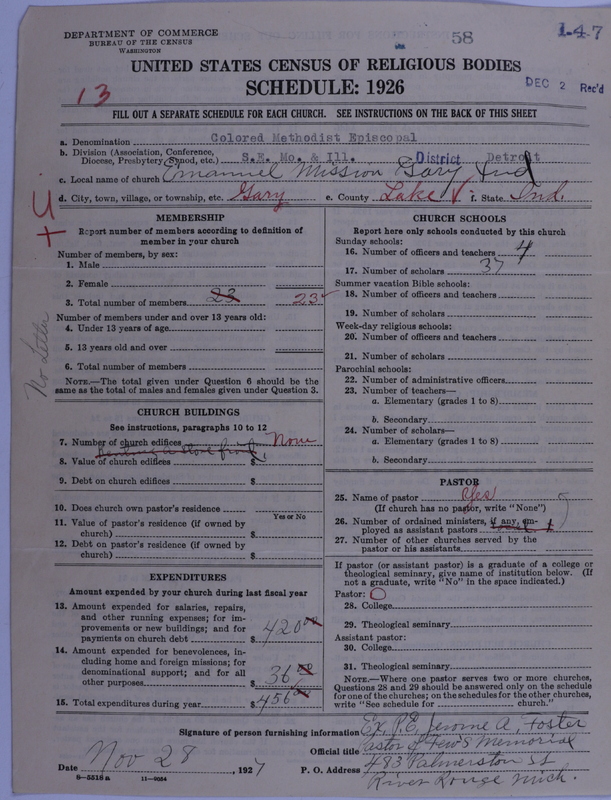 DEPARTMENT OF COMMERCE
BUREAU OF THE CENSUS
WASHINGTON
58
147
DEC 2 Rec'd
13
UNITED STATES CENSUS OF RELIGIOUS BODIES
SCHEDULE: 1926
FILL OUT A SEPARATE SCHEDULE FOR EACH CHURCH. SEE INSTRUCTIONS ON THE BACK OF THIS SHEET
a. Denomination Colored Methodist Episcopal
b. Division (Association, Conference, Diocese, Presbytery, Synod, etc.) S.E. Mo. & Ill. District Detroit
c. Local name of church Emanuel Mission Gary Ind
d. City, town, village, or township, etc. Gary e. County Lake f. State Ind.
MEMBERSHIP
Report number of members according to definition of
member in your church
Number of members, by sex:
1. Male
2. Female
3. Total number of members 23 23
Number of members under and over 13 years old:
4. Under 13 years of age
5. 13 years old and over
6. Total number of members
NOTE.—The total given under Question 6 should be
same as the total of males and females given under Question 3.
No Letter
CHURCH BUILDINGS
See instructions, paragraphs 10 to 12
7. Number of church edifices None
Renting a store front
8. Value of church edifices $
9. Debt on church edifices $
10. Does church own pastor's residence
Yes or No
11. Value of pastor's residence (if owned by
church) $
12. Debt on pastor's residence (if owned by
church) $
EXPENDITURES
Amount expended by your church during last fiscal year
13. Amount expended for salaries, repairs,
and other running expenses; for im-
provements or new buildings; and for
payments on church debt $ 420 00
14. Amount expended for benevolences, in-
cluding home and foreign missions; for
denominational support; and for all
other purposes $ 36 00
15. Total expenditures during year $ 456
CHURCH SCHOOLS
Report here only schools conducted by this church
Sunday schools:
16. Number of officers and teachers 4
17. Number of scholars 37
Summer vacation Bible schools:
18. Number of officers and teachers
19. Number of scholars
Week-day religious schools:
20. Number of officers and teachers
21. Number of scholars
Parochial schools:
22. Number of administrative officers
23. Number of teachers—
a. Elementary (grades 1 to 8)
b. Secondary
24. Number of scholars—
a. Elementary (grades 1 to 8)
b. Secondary
PASTOR
25. Name of pastor Yes
(If church has no pastor, write "None")
26. Number of ordained ministers, if any, em-
ployed as assistant pastors
27. Number of other churches served by the
pastor or his assistants
If pastor (or assistant pastor) is a graduate of a college or
theological seminary, give name of institution below. (If
not a graduate, write "No" in the space indicated.)
Pastor: O
28. College
29. Theological seminary
Assistant pastor:
30. College
31. Theological seminary
NOTE.—Where one pastor serves two or more churches,
Questions 28 and 29 should be answered only on the schedule
for one of the churches; on the schedules for the other churches,
write "See schedule for church."
Signature of person furnishing information Ex. P.E. Jerome A. Foster
Official title Pastor of Tews Memorial
Date Nov 28, 1927 P. O. Address 483 Palmerston St
River Rouge Mich.
8—5518 a 11—9054